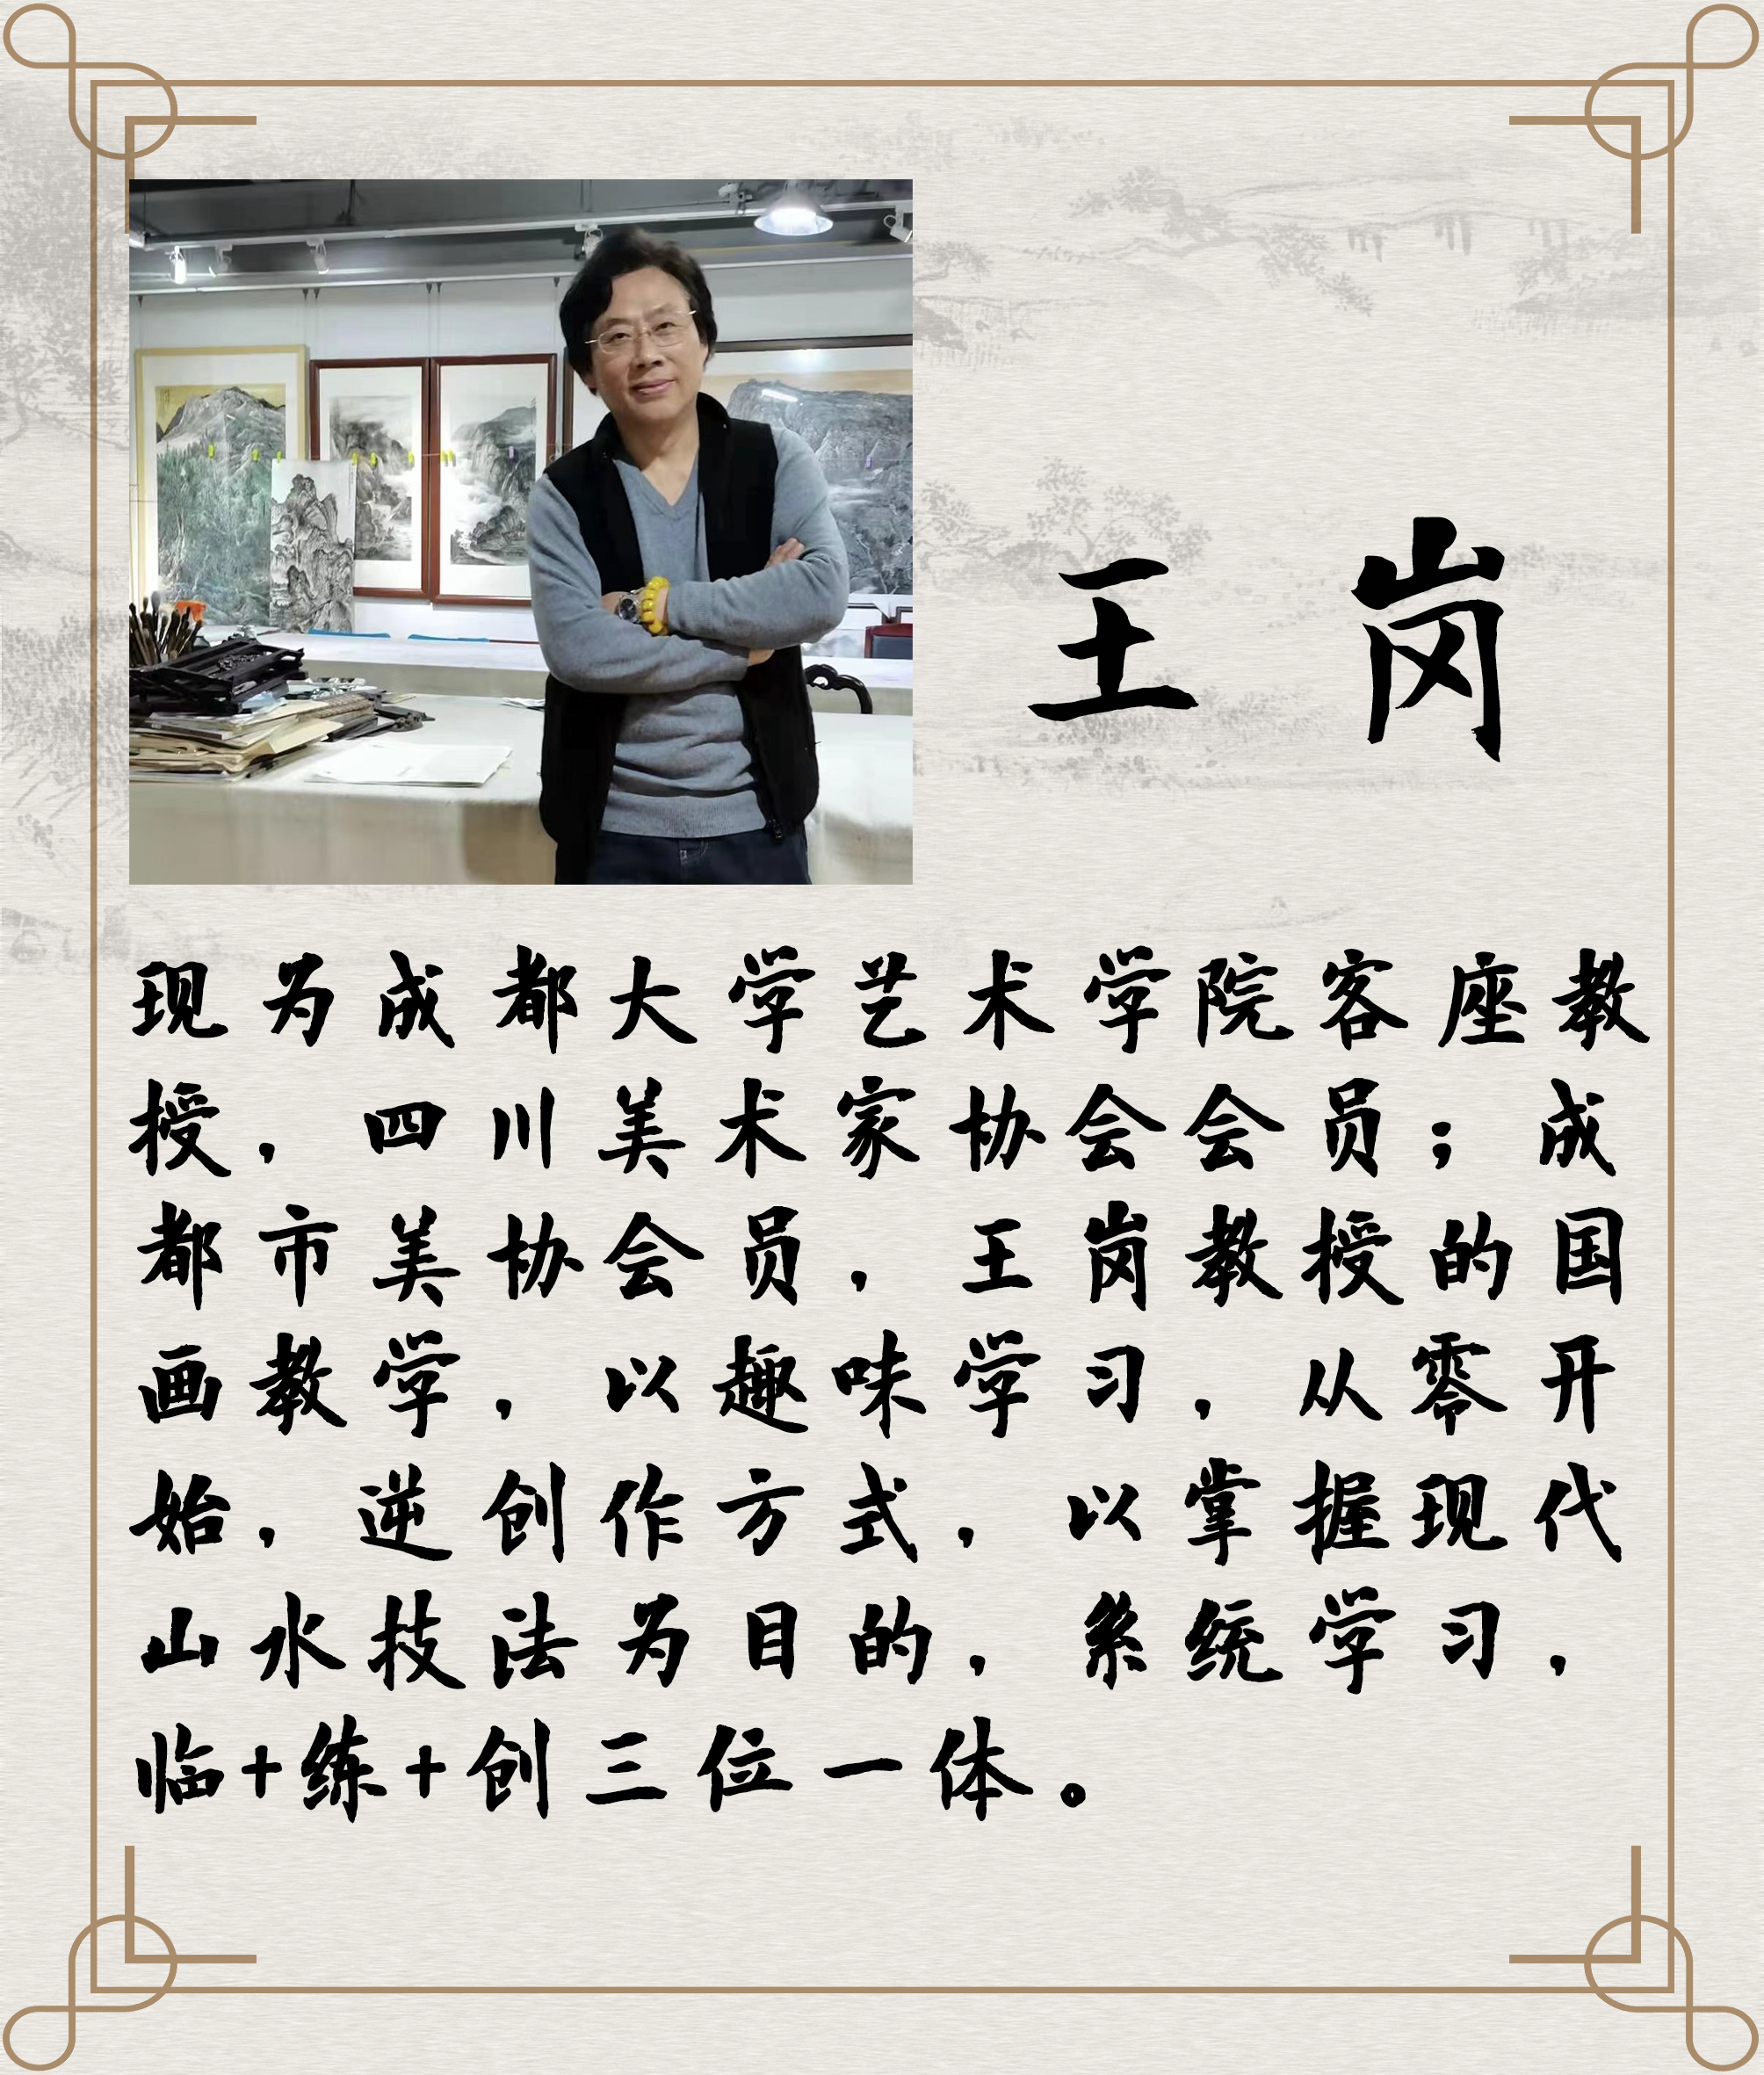 王岗
现为成都大学艺术学院客座教
授，四川美术家协会会员；成
都市美协会员，王岗教授的国
画教学，以趣味学习，从零开
始，逆创作方式，以掌握现代
山水技法为目的，系统学习，
临+练+创三位一体。